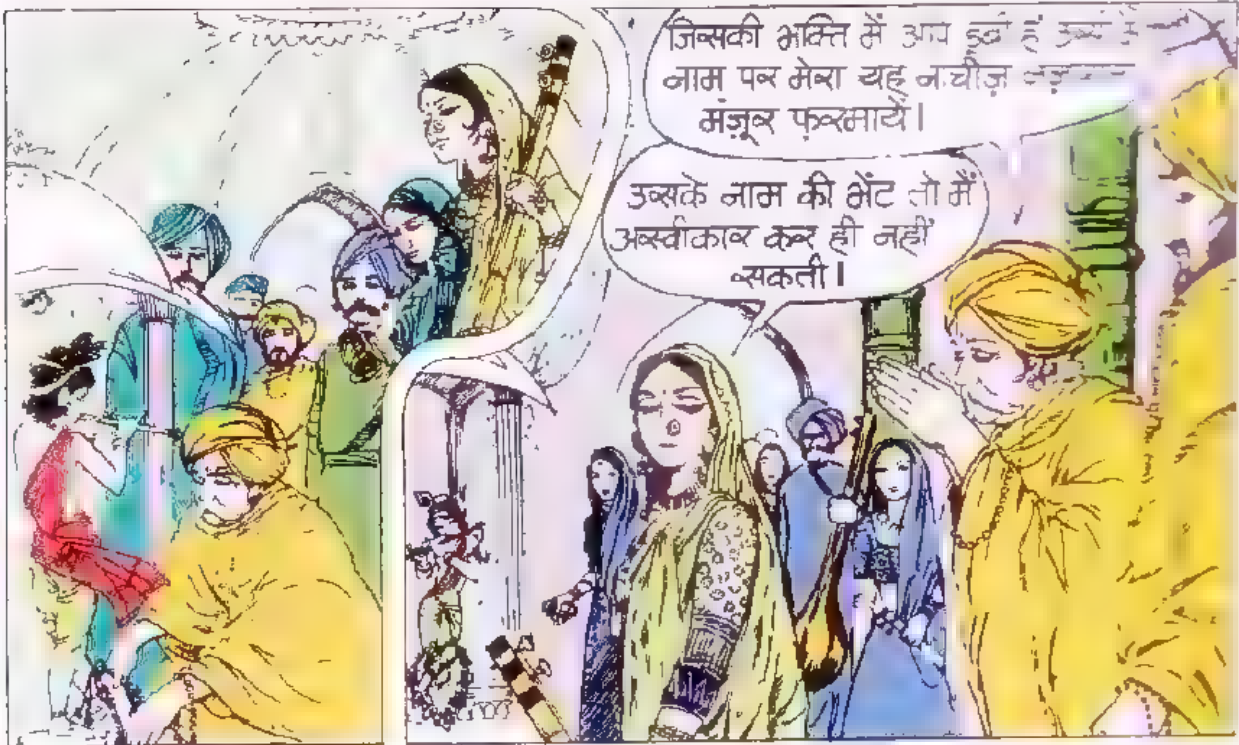 जिसकी भक्ति में आप डूबी हैं उसी के
नाम पर मेरा यह नाचीज़
मंज़ूर फ़रमायें।
उसके नाम की भेंट तो मैं
अस्वीकार कर ही नहीं
सकती।